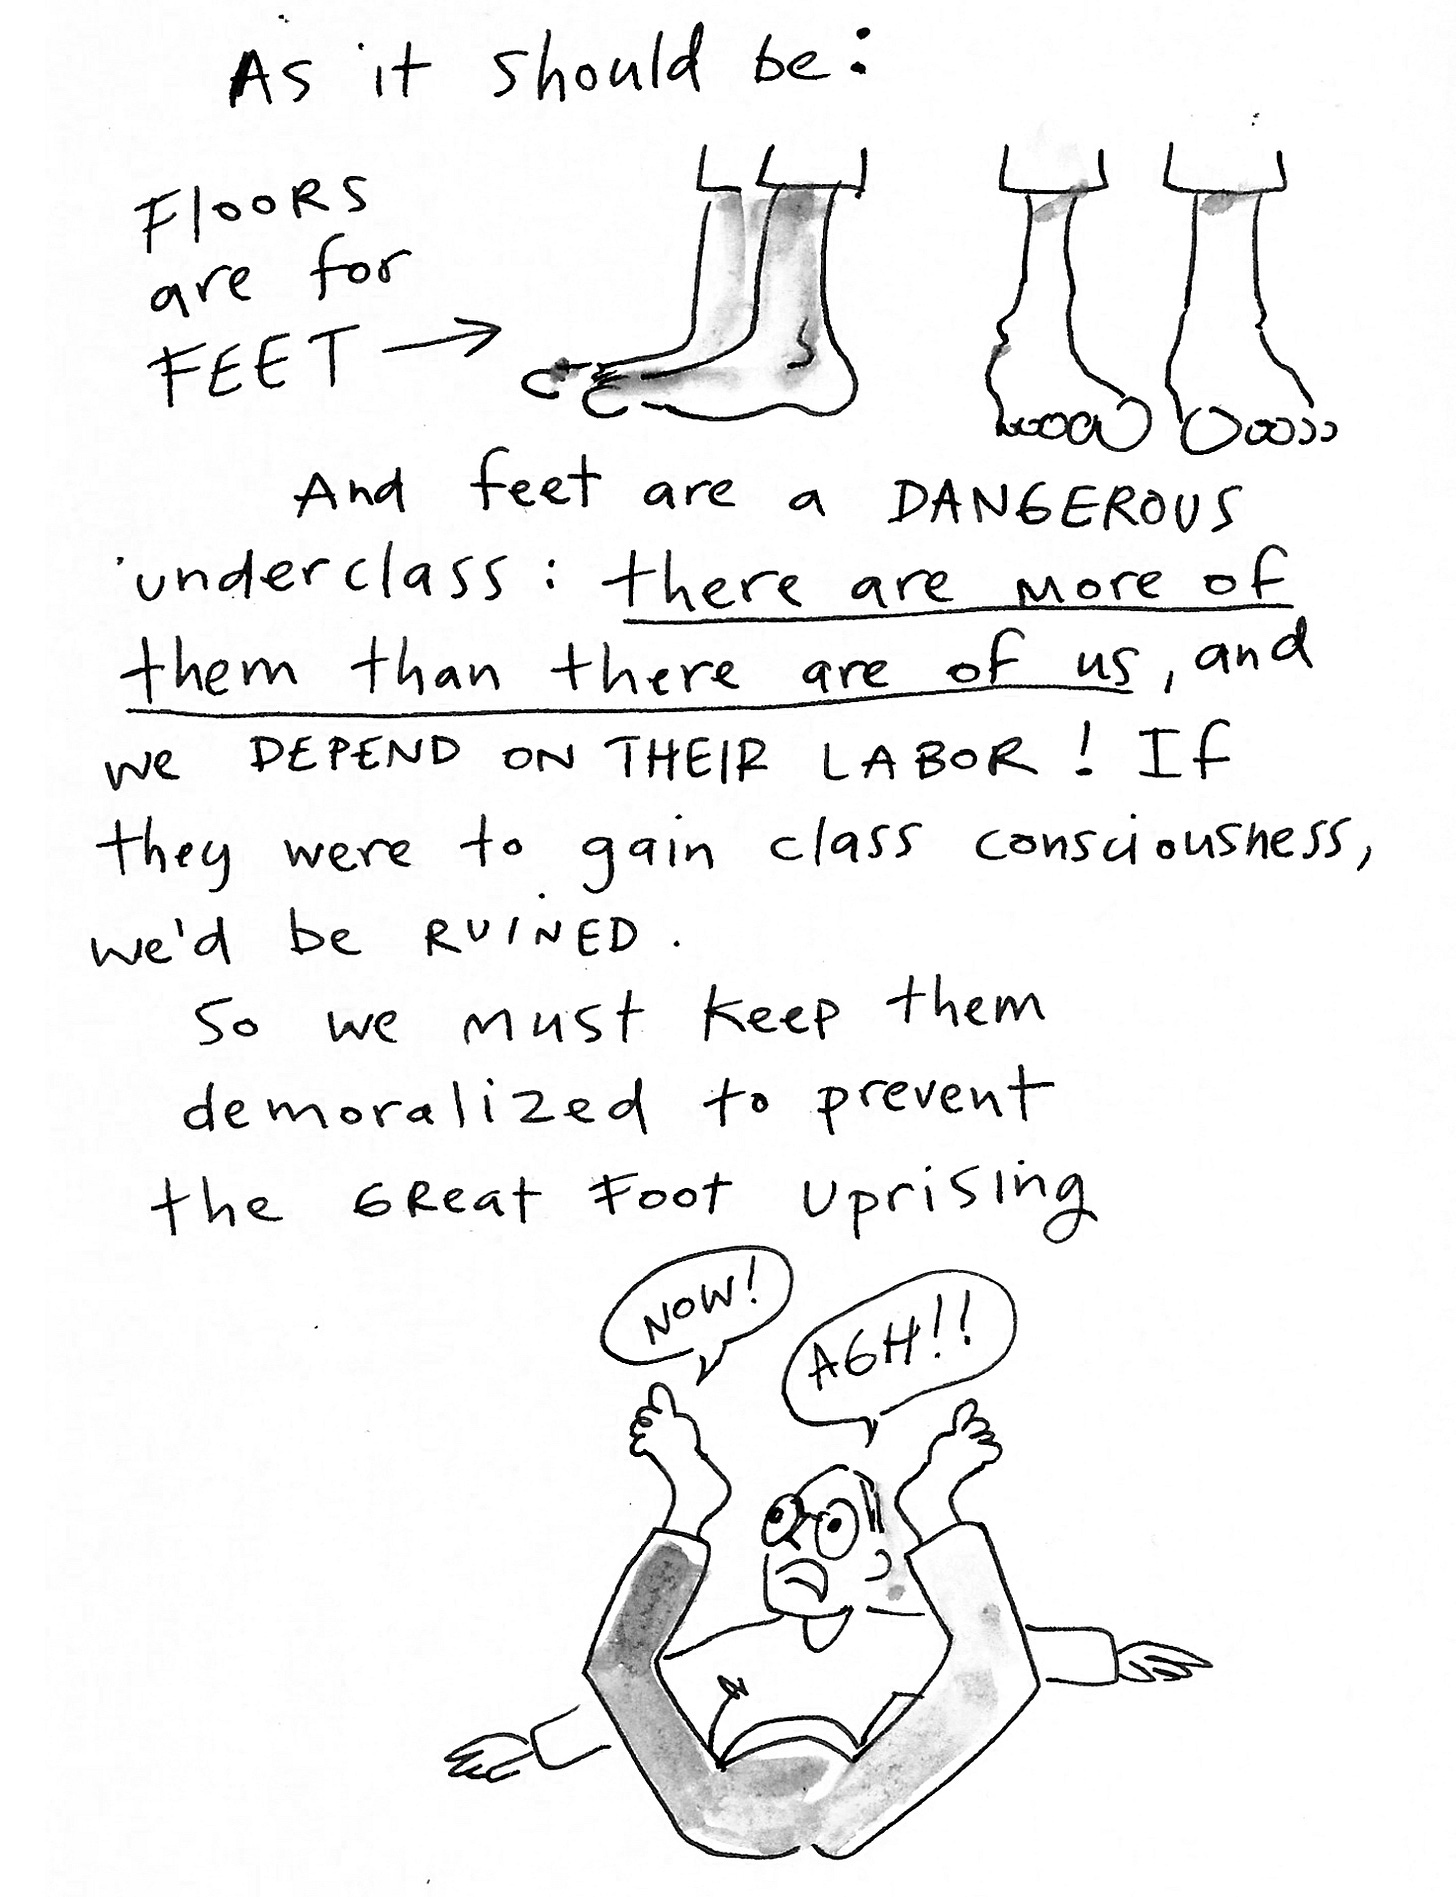 As it should be:
FlooRS
are for
FEET
And feet are a DANGEROUS
underclass: there are more of
them than there are of us, and
we DEPEND ON THEIR LABOR! If
they were to gain class consciousness,
we'd be RUINED.
So we must keep them
demoralized to prevent
the GReat Foot uprising
NOW!
AGH!!